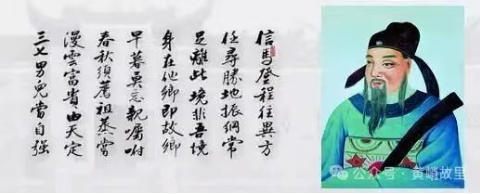 信馬登程往異方
任尋勝地振綱常
足離此境非吾境
身在他鄉即故鄉
早暮莫忘親囑咐
春秋須薦祖蒸嘗
漫雲富貴由天定
三七男兒當自強
公众号·黄峭故里